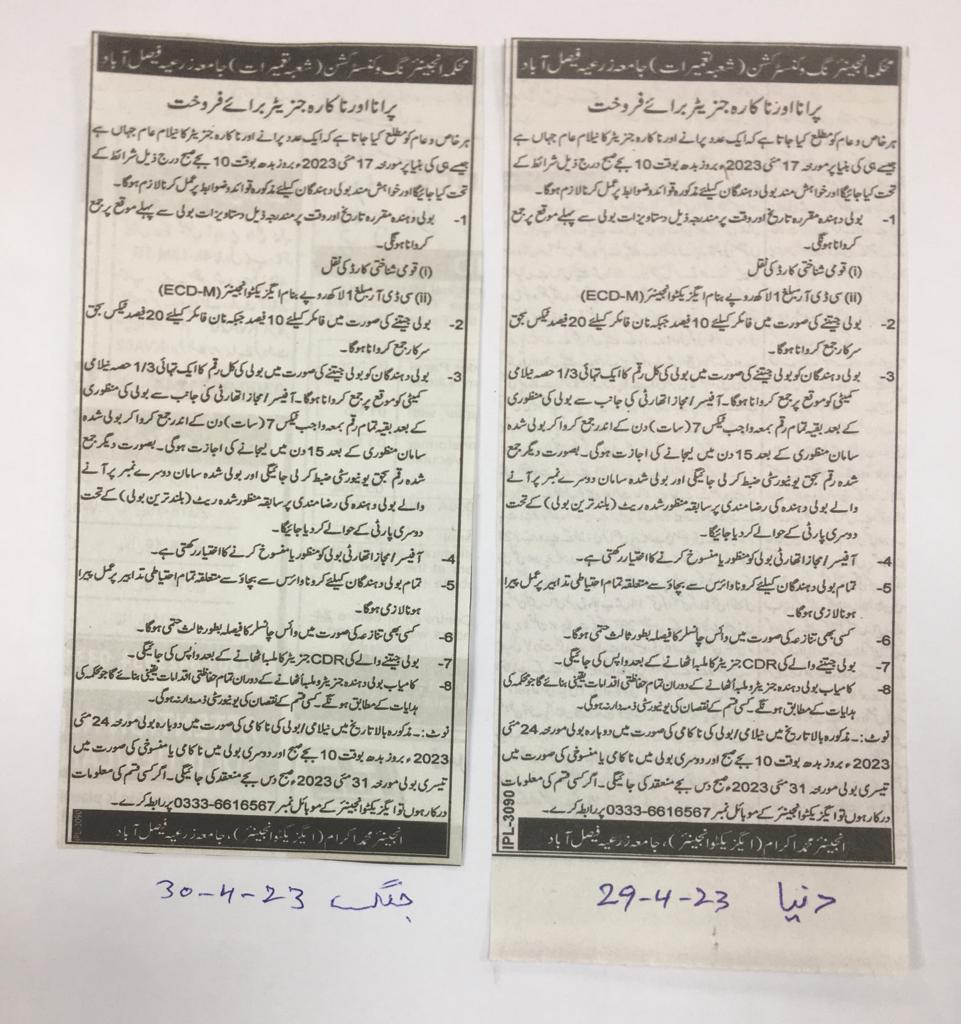 محکمہ انجینئرنگ و کنسٹرکشن (شعبہ تعمیرات) جامعہ زرعیہ فیصل آباد
پرانا اور ناکارہ جنریٹر برائے فروخت
ہر خاص و عام کو مطلع کیا جاتا ہے کہ ایک عدد پرانے اور ناکارہ جنریٹر کا نیلام عام جہاں ہے
جیسے ہی کی بنیا پر مورخہ 17 مئی 2023ء بروز بدھ بوقت 10 بجے صبح درج ذیل شرائط کے
تحت کیا جائیگا اور خواہش مند بولی دہندگان کیلئے مذکورہ قوائد و ضوابط پر عمل کرنا لازم ہوگا۔
1- بولی دہندہ مقررہ تاریخ اور وقت پر مندرجہ ذیل دستاویزات بولی سے پہلے موقع پر جمع
کروانا ہونگی۔
(i) قومی شناختی کارڈ کی نقل
(ii) سی ڈی آر مبلغ 1 لاکھ روپے بنام ایگزیکٹو انجینئر (ECD-M)
2- بولی جیتنے کی صورت میں فائلر کیلئے 10 فیصد جبکہ نان فائلر کیلئے 20 فیصد ٹیکس بحق
سرکار جمع کروانا ہوگا۔
3- بولی دہندگان کو بولی جیتنے کی صورت میں بولی کی کل رقم کا ایک تہائی 1/3 حصہ نیلامی
کمیٹی کو موقع پر جمع کروانا ہوگا۔ آفیسر/مجاز اتھارٹی کی جانب سے بولی کی منظوری
کے بعد بقیہ تمام رقم بمعہ واجب ٹیکس 7 (سات) دن کے اندر جمع کروا کر بولی شدہ
سامان منظوری کے بعد 15 دن میں لیجانے کی اجازت ہوگی۔ بصورت دیگر جمع
شدہ رقم بحق یونیورسٹی ضبط کر لی جائیگی اور بولی شدہ سامان دوسرے نمبر پر آنے
والے بولی دہندہ کی رضامندی پر سابقہ منظور شدہ ریٹ (بلند ترین بولی) کے تحت
دوسری پارٹی کے حوالے کر دیا جائیگا۔
4- آفیسر/مجاز اتھارٹی بولی کو منظور یا منسوخ کرنے کا اختیار رکھتی ہے۔
5- تمام بولی دہندگان کیلئے کرونا وائرس سے بچاؤ سے متعلقہ تمام احتیاطی تدابیر پر عمل پیرا
ہونا لازمی ہوگا۔
6- کسی بھی تنازعہ کی صورت میں وائس چانسلر کا فیصلہ بطور ثالث حتمی ہوگا۔
7- بولی جیتنے والے کی CDR جنریٹر کا ملبہ اٹھانے کے بعد واپس کی جائیگی۔
8- کامیاب بولی دہندہ جنریٹر و ملبہ اُٹھانے کے دوران تمام حفاظتی اقدامات یقینی بنائے گا جو محکمہ کی
ہدایات کے مطابق ہونگے۔ کسی قسم کے نقصان کی یونیورسٹی ذمہ دار نہ ہوگی۔
نوٹ:۔ مذکورہ بالا تاریخ میں نیلامی/بولی کی ناکامی کی صورت میں دوبارہ بولی مورخہ 24 مئی
2023ء بروز بدھ بوقت 10 بجے صبح اور دوسری بولی میں ناکامی یا منسوخی کی صورت میں
تیسری بولی مورخہ 31 مئی 2023ء صبح دس بجے منعقد کی جائیگی۔ اگر کسی قسم کی معلومات
درکار ہوں تو ایگزیکٹو انجینئر کے موبائل نمبر 0333-6616567 پر رابطہ کرے۔
IPL-3090
انجینئر محمد اکرام (ایگزیکٹو انجینئر)، جامعہ زرعیہ فیصل آباد
دنیا 29-4-23
محکمہ انجینئرنگ و کنسٹرکشن (شعبہ تعمیرات) جامعہ زرعیہ فیصل آباد
پرانا اور ناکارہ جنریٹر برائے فروخت
ہر خاص و عام کو مطلع کیا جاتا ہے کہ ایک عدد پرانے اور ناکارہ جنریٹر کا نیلام عام جہاں ہے
جیسے ہی کی بنیا پر مورخہ 17 مئی 2023ء بروز بدھ بوقت 10 بجے صبح درج ذیل شرائط کے
تحت کیا جائیگا اور خواہش مند بولی دہندگان کیلئے مذکورہ قوائد و ضوابط پر عمل کرنا لازم ہوگا۔
1- بولی دہندہ مقررہ تاریخ اور وقت پر مندرجہ ذیل دستاویزات بولی سے پہلے موقع پر جمع
کروانا ہونگی۔
(i) قومی شناختی کارڈ کی نقل
(ii) سی ڈی آر مبلغ 1 لاکھ روپے بنام ایگزیکٹو انجینئر (ECD-M)
2- بولی جیتنے کی صورت میں فائلر کیلئے 10 فیصد جبکہ نان فائلر کیلئے 20 فیصد ٹیکس بحق
سرکار جمع کروانا ہوگا۔
3- بولی دہندگان کو بولی جیتنے کی صورت میں بولی کی کل رقم کا ایک تہائی 1/3 حصہ نیلامی
کمیٹی کو موقع پر جمع کروانا ہوگا۔ آفیسر/مجاز اتھارٹی کی جانب سے بولی کی منظوری
کے بعد بقیہ تمام رقم بمعہ واجب ٹیکس 7 (سات) دن کے اندر جمع کروا کر بولی شدہ
سامان منظوری کے بعد 15 دن میں لیجانے کی اجازت ہوگی۔ بصورت دیگر جمع
شدہ رقم بحق یونیورسٹی ضبط کر لی جائیگی اور بولی شدہ سامان دوسرے نمبر پر آنے
والے بولی دہندہ کی رضامندی پر سابقہ منظور شدہ ریٹ (بلند ترین بولی) کے تحت
دوسری پارٹی کے حوالے کر دیا جائیگا۔
4- آفیسر/مجاز اتھارٹی بولی کو منظور یا منسوخ کرنے کا اختیار رکھتی ہے۔
5- تمام بولی دہندگان کیلئے کرونا وائرس سے بچاؤ سے متعلقہ تمام احتیاطی تدابیر پر عمل پیرا
ہونا لازمی ہوگا۔
6- کسی بھی تنازعہ کی صورت میں وائس چانسلر کا فیصلہ بطور ثالث حتمی ہوگا۔
7- بولی جیتنے والے کی CDR جنریٹر کا ملبہ اٹھانے کے بعد واپس کی جائیگی۔
8- کامیاب بولی دہندہ جنریٹر و ملبہ اُٹھانے کے دوران تمام حفاظتی اقدامات یقینی بنائے گا جو محکمہ کی
ہدایات کے مطابق ہونگے۔ کسی قسم کے نقصان کی یونیورسٹی ذمہ دار نہ ہوگی۔
نوٹ:۔ مذکورہ بالا تاریخ میں نیلامی/بولی کی ناکامی کی صورت میں دوبارہ بولی مورخہ 24 مئی
2023ء بروز بدھ بوقت 10 بجے صبح اور دوسری بولی میں ناکامی یا منسوخی کی صورت میں
تیسری بولی مورخہ 31 مئی 2023ء صبح دس بجے منعقد کی جائیگی۔ اگر کسی قسم کی معلومات
درکار ہوں تو ایگزیکٹو انجینئر کے موبائل نمبر 0333-6616567 پر رابطہ کرے۔
IPL-3090
انجینئر محمد اکرام (ایگزیکٹو انجینئر)، جامعہ زرعیہ فیصل آباد
جنگ 30-4-23